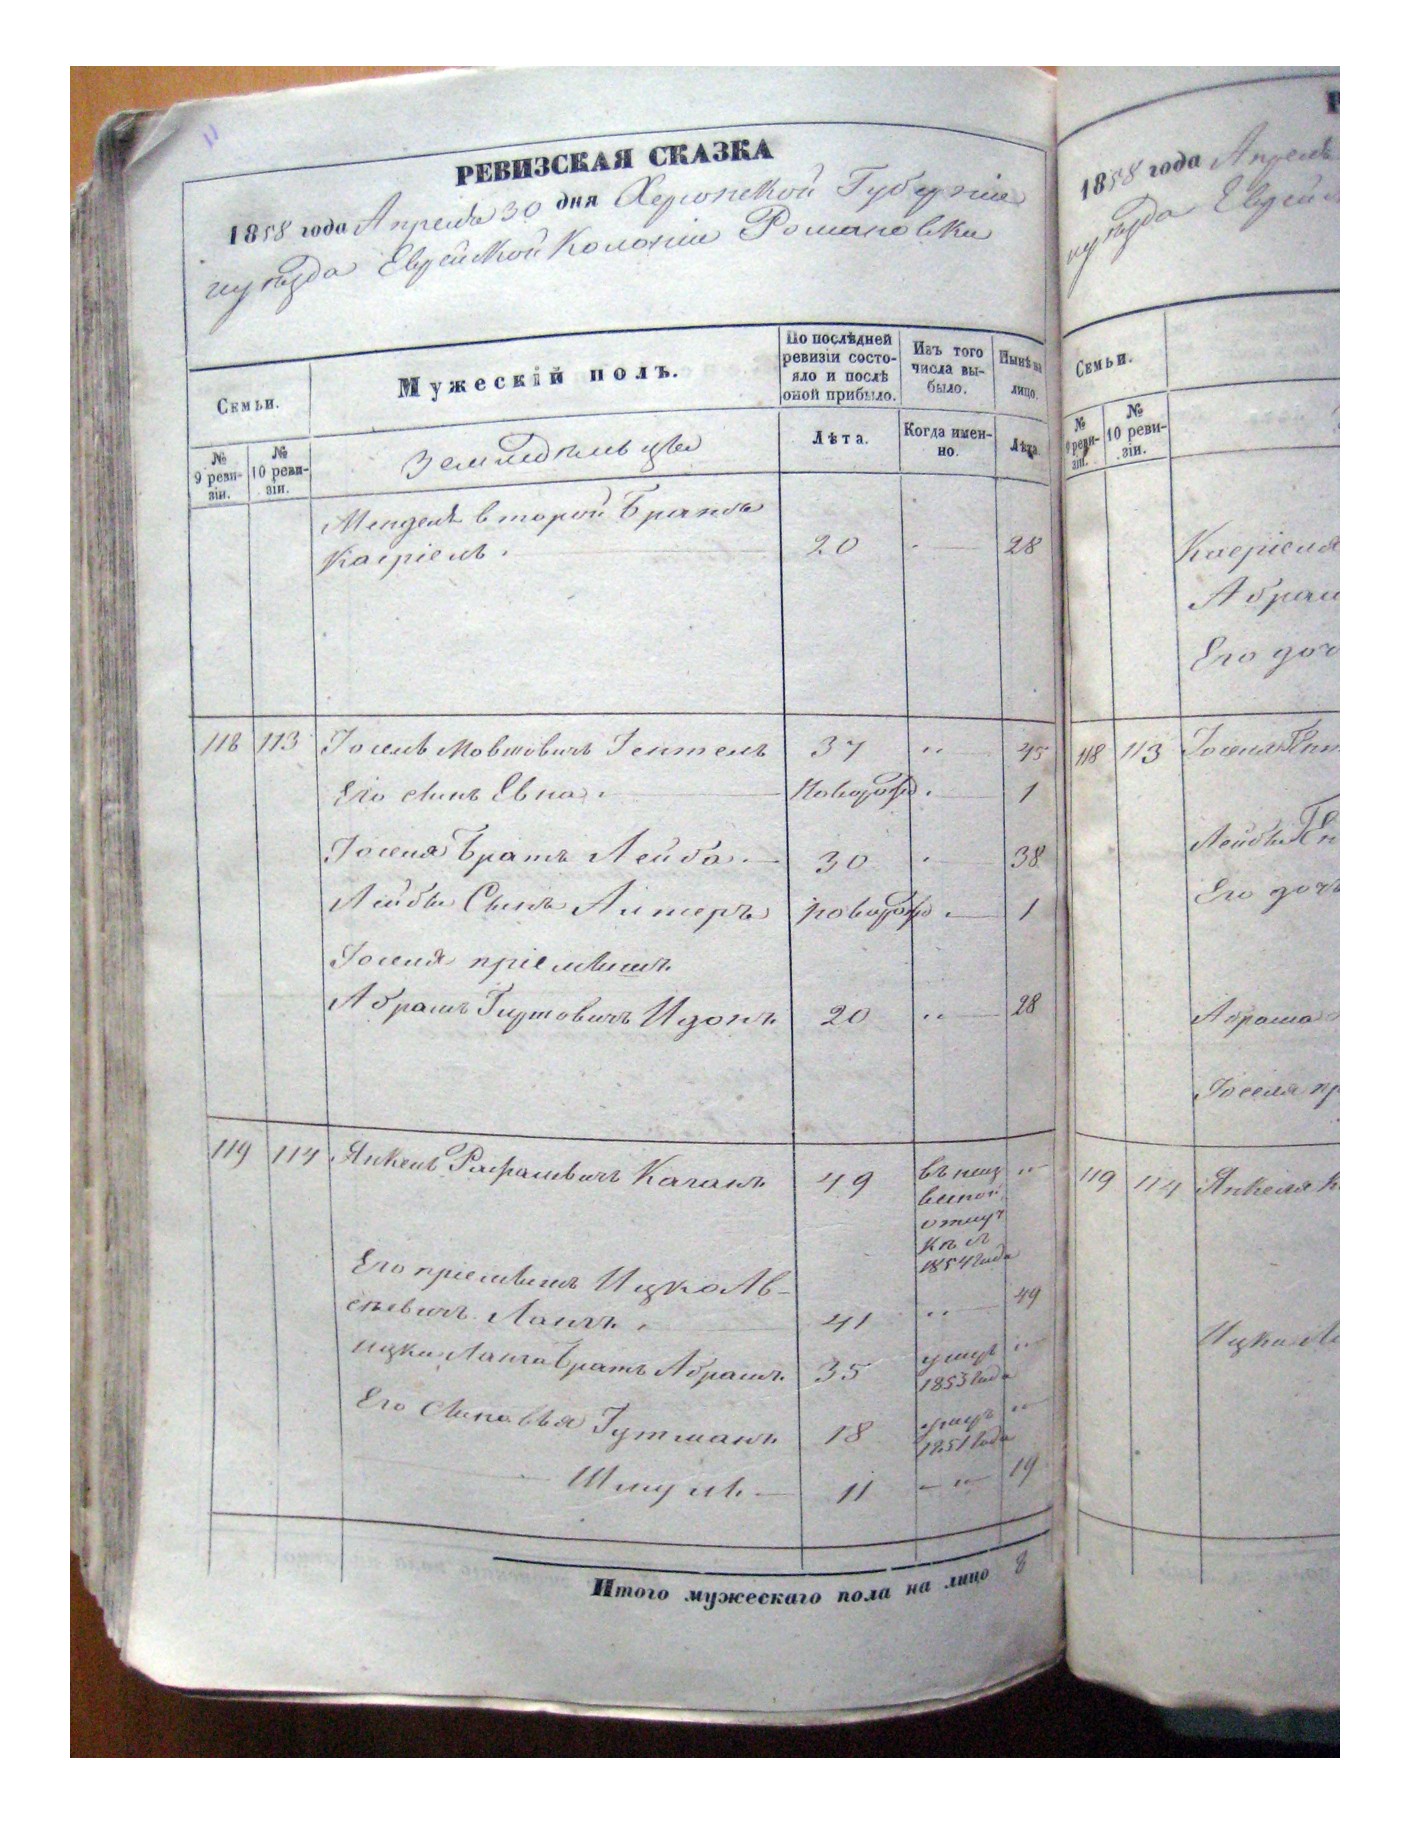 РЕВИЗСКАЯ СКАЗКА
1858 года Апреля 30 дня Херсонской Губерніи
и уѣзда Еврейской Колоніи Романовки
Семьи.
Мужескій полъ.
По послѣдней ревизіи состояло и послѣ оной прибыло.
Изъ того числа выбыло.
Нынѣ на лицо.
№ 9 ревизіи.
№ 10 ревизіи.
Земледѣльцы
Лѣта.
Когда именно.
Лѣта.
Менделя второй Братъ
Касріель. 20 28
118 113 Іосель Мовшовичъ 37 „ 45
Его сынъ Евна. Новорож. 1
Іоселя Братъ Лейба. 30 38
Лейбы Сынъ Алтеръ Новорож. 1
Іоселя пріемышъ
Абрамъ 20 „ 28
119 114 Янкель Рафаловичъ Каганъ. 49 „
отлуч
1854 года
Его пріемышъ Ицко Ав-
сѣевичъ 41 „ 49
Ицки Братъ Абрамъ. 35 „
1853 года
Его Сыновья Гутманъ. 18 „
1851 года
Шмуль. 11 „ 19
Итого мужескаго пола на лицо 8
1858 года Апреля
и уѣзда
Семьи.
№ 9 ревизіи.
№ 10 ревизіи.
Касріеля
Абрам
Его доч
118 113 Іоселя
Лейбы
Его дочь
Абрама
Іоселя пр
119 114 Янкеля К
Ицки